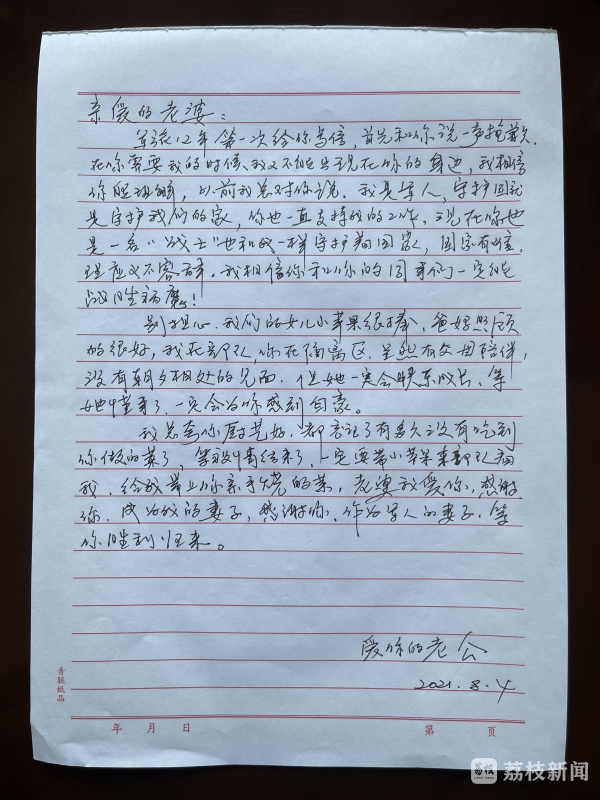 亲爱的老婆：
结婚12年第一次给你写信，首先和你说一声抱歉.
在你需要我的时候我又不能出现在你的身边，我相信
你能理解，以前我总对你说.我是军人，守护国就
是守护我们的家，你也一直支持我的工作，现在你也
是一名"战士"也和我一样守护着国家，国家有难，
理应义不容辞.我相信你和你的同事们一定能
战胜病魔！
别担心.我们的女儿小苹果很棒，爸妈照顾
的很好，我在部队，你在隔离区.虽然有父母陪伴，
没有朝夕相处的见面.但她一定会快乐成长.等
她懂事了，一定会为你感到自豪。
我总夸你厨艺好，都忘记了有多久没有吃到
你做的菜了，等疫情结束了，一定要带小苹果来部队
我.给我带上你亲手烧的菜，老婆我爱你，感谢
你.成为我的妻子，感谢你.作为军人的妻子.等
你胜利归来。
爱你的老公
2021.8.4
青联纸品
年 月 日 第 页
荔枝新闻